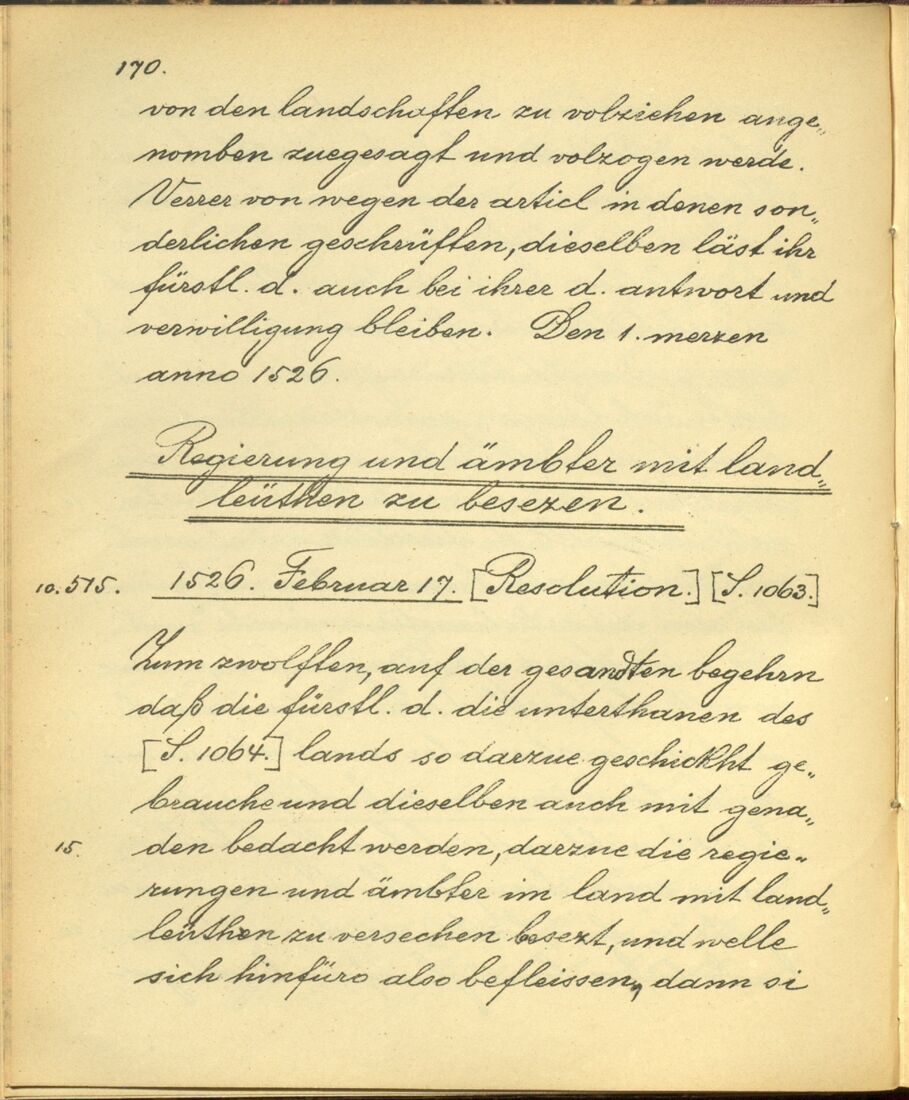 170.
von den landschafften zu volziehen ange„
nomben zuegesagt und volzogen werde.
Verrer von wegen der articl in denen son„
derlichen geschrüfften, dieselben läst ihr
fürstl. d. auch bei ihrer d. antwort und
verwilligung bleiben. Den 1. merzen
anno 1526.
Regierung und ämbter mit land„
leüthen zu besezen.
10. 515. 1526. Februar 17. [Resolution.] [S. 1063.]
Zum zwolfften, auf der gesandten begehrn
daß die fürstl. d. die unterthanen des
[S. 1064.] lands so darzue geschickht ge„
brauche und dieselben auch mit gena„
15. den bedacht werden, darzue die regie„
rungen und ämbter im land mit land„
leüthen zu versechen besezt, und welle
sich hinfüro also befleissen, dann si